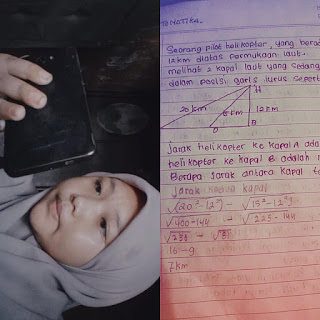 Seorang pilot helikopter, yang bera
12 km diatas permukaan laut.
melihat 2 kapal laut yang sedang
dalam posisi garis lurus sepert
H
20 km
15 km
12 km
D
B
jarak helikopter ke kapal A ada
helikopter ke kapal B adalah
Berapa jarak antara kapal
jarak kedua kapal
√20² - 12² - √15² - 12²
√400 - 144 - √225 - 144
√256 - √81
16 - 9
7 km